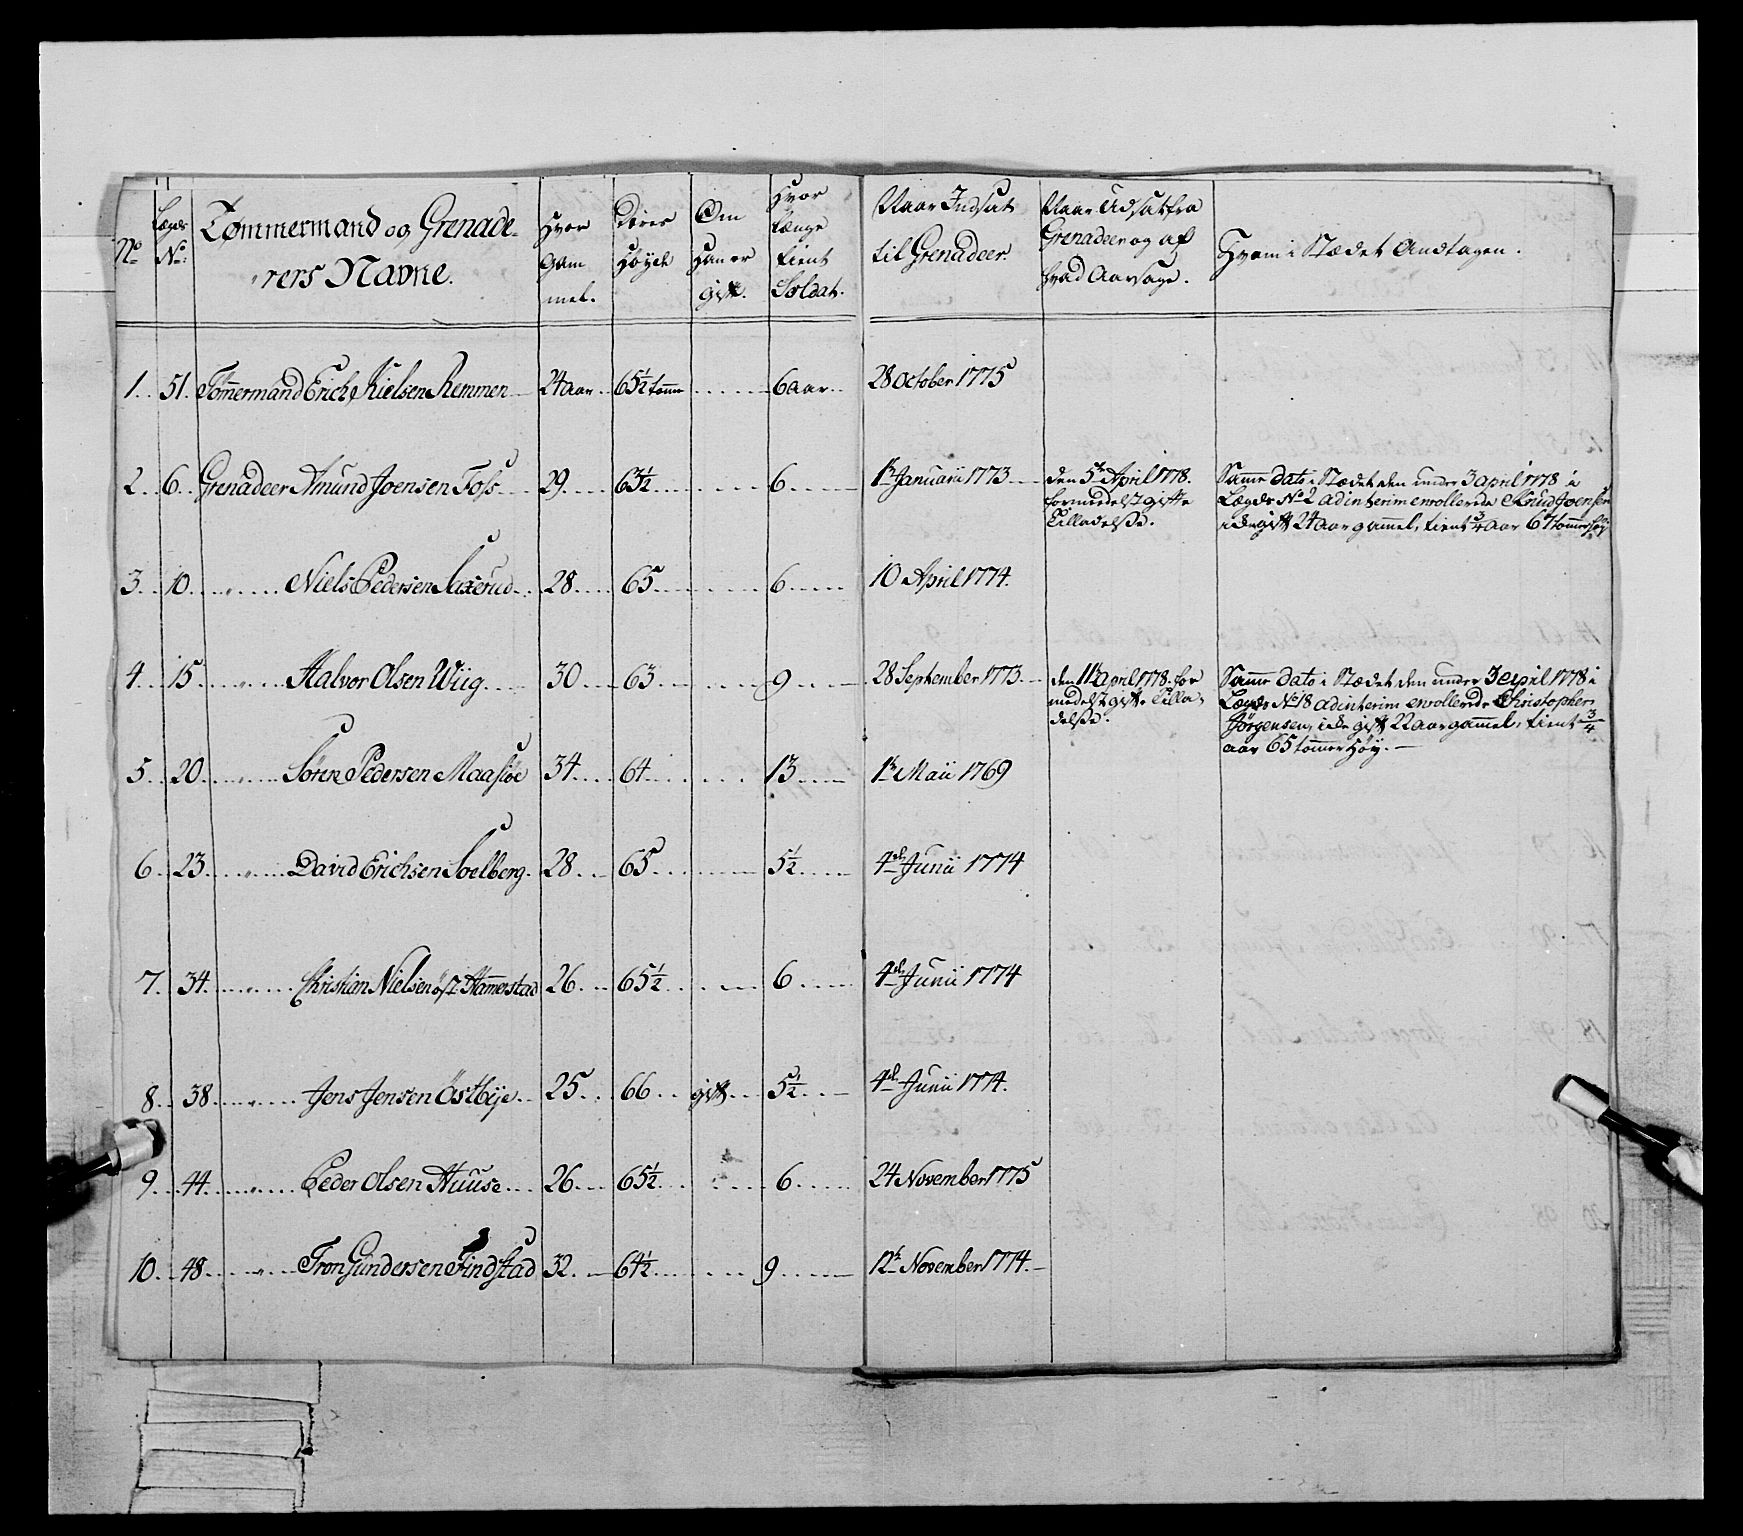 No
Lægds No:
Tømmermand og Grenade-
rers Navne.
Hvor
Gam
mel.
Deres
Høyde
Om
Han er
gift.
Hvor
længe
tient
Soldat.
Naar Indsat
til Grenadeer.
Naar Udsat fra
Grenadeer og af
hvad Aarsage.
Hvem i Stædet Antagen.
1 51 Tømmermand Erich Nielsen Remmen 24 aar 65½ tomme 6 aar 28 October 1775
2 6 Grenadeer Amund Joensen Foss 29 63½ 6 1te Januarii 1773
den 5te April 1778.
formedelst gifte
Tilladelse.
Samme dato i Stædet den under 3 april 1778 i
Lægds No 2 ad interim enrollerede Knud Joensen
icke gift 24 aar gammel, tient ¾ aar 67 tommer høy
3 10 " Niels Pedersen Saxerud 28 65 6 10 April 1774.
4 15 " Halvor Olsen Wiig 30 63 9 28 September 1773
den 11te April 1778. for
medelst gifte Tilla-
delse.
Samme dato i Stædet den under 3 april 1778 i
Lægds No 18 ad interim enrollerede Christopher
Jörgensen, icke gift 22 aar gammel, tient ¾
aar 65 tommer Høy.
5 20 " Sören Pedersen Maasiøe 34 64 13 1te Maii 1769
6 23 " David Erichsen Soelberg 28 65 5½ 4de Junii 1774
7 34 " Christian Nielsen öst Hamerstad 26 65½ 6 4de Junii 1774
8 38 " Jens Jensen Östbye 25 66 gift 5½ 4de Junii 1774.
9 44 " Peder Olsen Huuse 26 65½ 6 24 November 1775
10 48 " Tron Gundersen Findstad 32 64½ 9 12te November 1774.